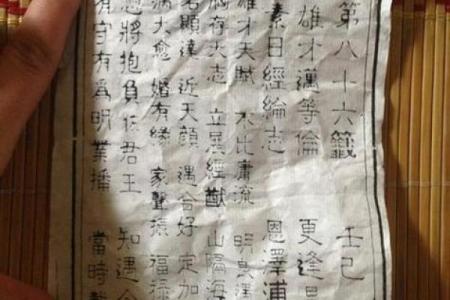 第八十六籤 壬己
雄才邁等倫 更逢
素日經綸志 恩澤浦
雄才天賦 不比庸流 明良
將存大志 立展經猷 山隔海
名顯達 近天顏 遇合好 定加
病大愈 婚有緣 家聲振 福祿
應將抱負佐君王 知遇
有守有為明業播 當時